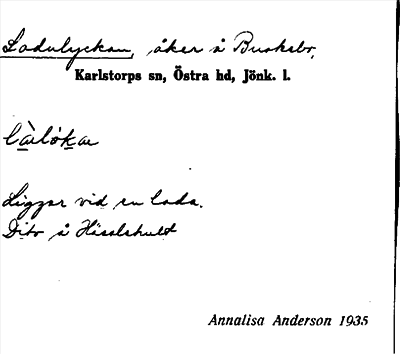 Ladulyckan, åker å Buskebo,
Karlstorps sn, Östra hd, Jönk. l.
Ligger vid en lada.
Dito å Hässlehult
Annalisa Anderson 1935